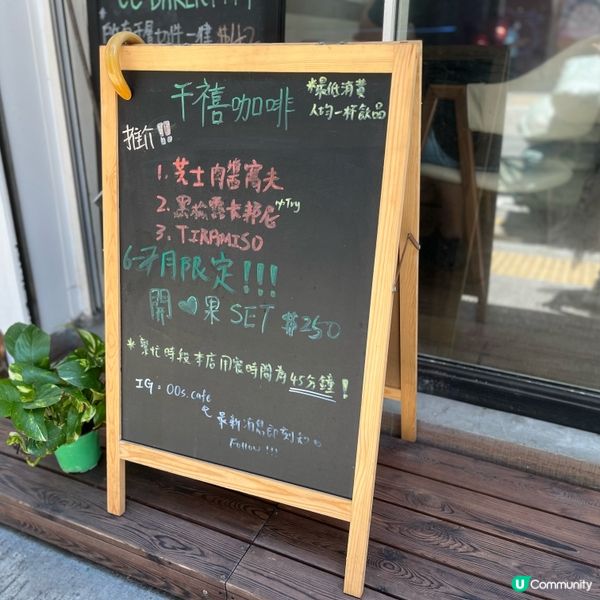 千禧咖啡
*最低消費
人均一杯飲品
推介!!
1. 芝士肉醬窩夫
2. 黑松露卡邦尼
3. TIRAMISO
6-7月限定!!!
開♥果 SET $250
*繁忙時段本店用餐時間為45分鐘!
IG: 00s.cafe
最新消息即刻知。
Follow !!!
U Community